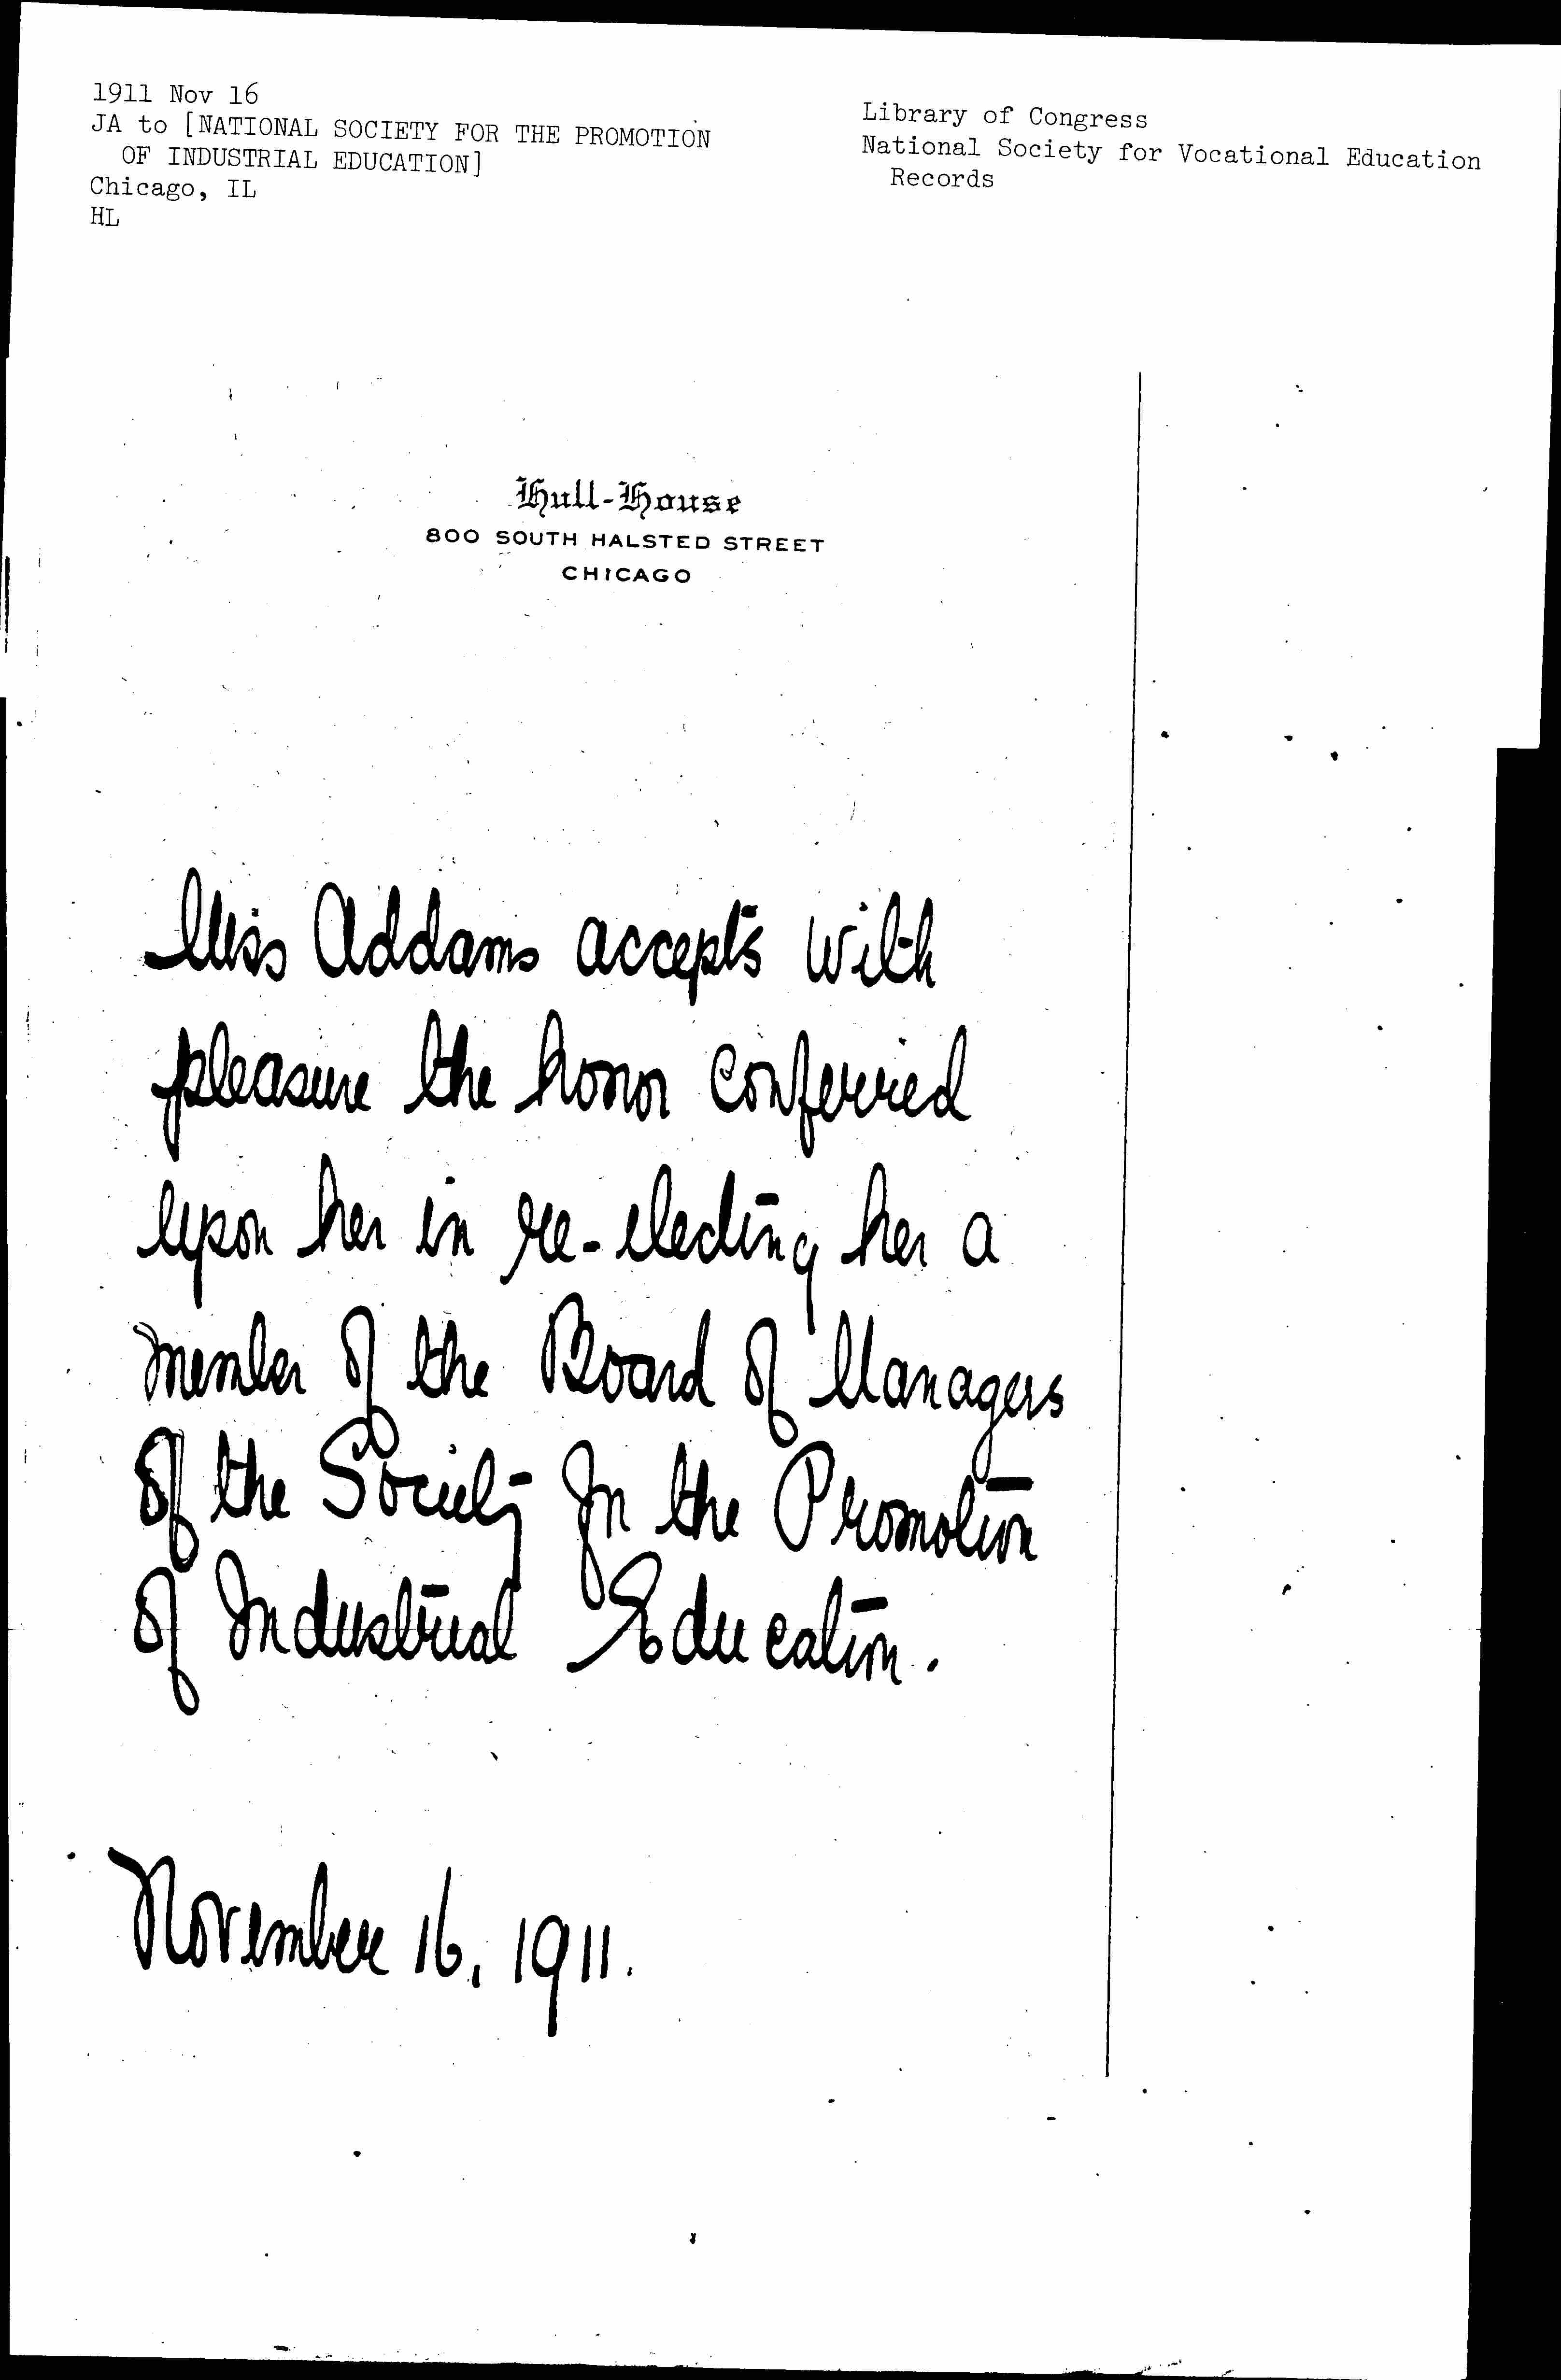 1911 Nov 16
JA to [NATIONAL SOCIETY FOR THE PROMOTION
OF INDUSTRIAL EDUCATION]
Chicago, IL
HL
Library of Congress
National Society for Vocational Education
Records
Hull-House
800 SOUTH HALSTED STREET
CHICAGO
Miss Addams accepts with
pleasure the honor conferred
upon her in re-electing her a
member of the Board of Managers
of the Society for the Promotion
of Industrial Education.
November 16, 1911.